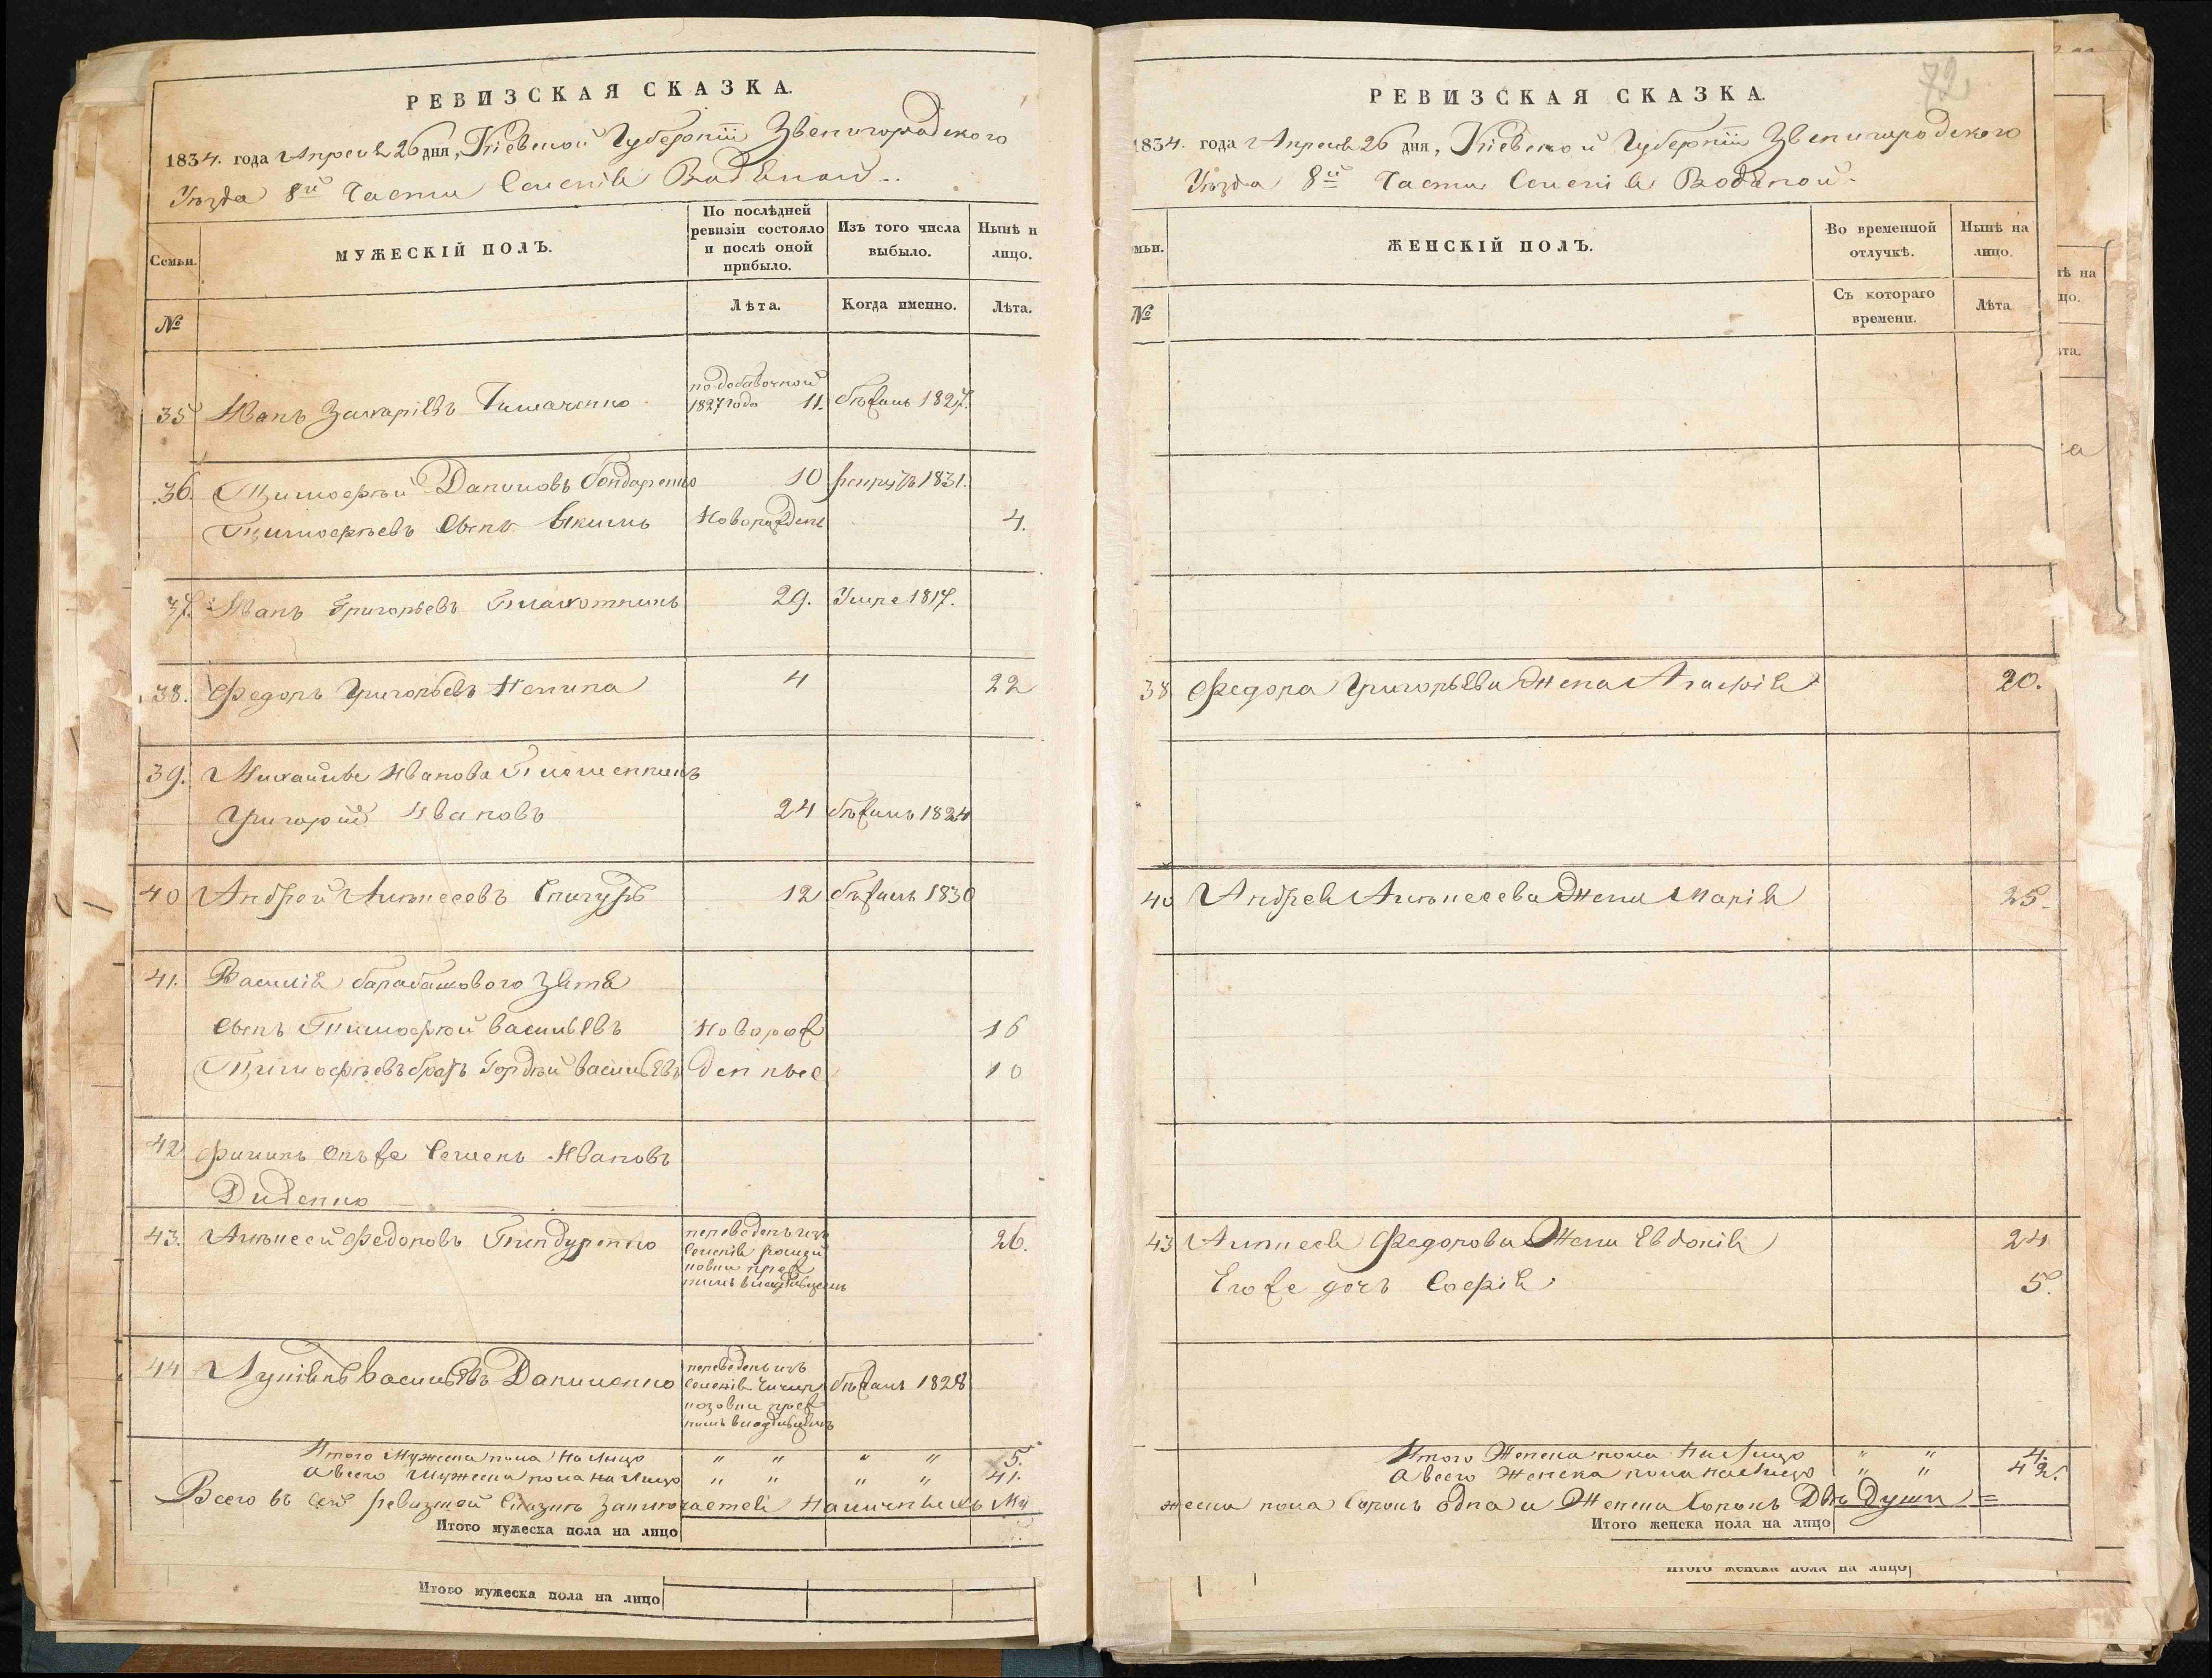 РЕВИЗСКАЯ СКАЗКА.
1834. года Апреля 26 дня, Кіевской Губерніи Звенигородскаго
Уѣзда 8й Части Селенія Водяной
Семьи.
МУЖЕСКІЙ ПОЛЪ.
По послѣдней ревизіи состояло и послѣ оной прибыло.
Изъ того числа выбыло.
Нынѣ н лицо.
№
Лѣта.
Когда именно.
Лѣта.
35 Иванъ Захаріевъ
по добавочной 1827 года 11. бѣжалъ 1827.
36. Тимофѣй Даниловъ Бондаренко 10 рекрутъ 1831.
Тимофѣевъ сынъ Якимъ Новорожденъ 4.
37. Иванъ Григорьевъ 29. Умре 1817.
38. Федоръ Григорьевъ 4 22
39. Михайлы Иванова
Григорій Ивановъ 24 бѣжалъ 1824
40 Андрей Алексеевъ 12 бѣжалъ 1830
41. Василія барабашового Зятя
сынъ Тимофѣй васильевъ Новорож 16
Тимофѣевъ братъ Гордѣй васильевъ денные 10
42 филипъ онъ же Семенъ Ивановъ
Диденко
43. Алексей Федоровъ переведенъ изъ Селенія 26.
44 Лукіянъ васильевъ Даниленко переведенъ изъ Селенія бѣжалъ 1828
Итого Мужеска пола На лицо " " " " 5.
А всего мужеска пола на лицо " " " " 41.
Всего въ сей ревизской Сказкѣ заключается Наличныхъ Му
Итого мужеска пола на лицо
Итого мужеска пола на лицо
72
РЕВИЗСКАЯ СКАЗКА.
1834. года Апреля 26 дня, Кіевской Губерніи Звенигородскаго
Уѣзда 8й Части Селенія Водяной
мьи.
ЖЕНСКІЙ ПОЛЪ.
Во временной отлучкѣ.
Нынѣ на лицо.
№
Съ котораго времени.
Лѣта
38 Федора Григорьева Жена Агафія 20.
40 Андрея Алексеева Жена Марія 25.
43 Алексея Федорова Жена Евдокія 24
Его же дочь Софія 5.
Итого Женска пола На Лицо " " 4.
А всего Женска пола на лицо " " 42.
жеска пола Сорокъ одна и Женска Сорокъ Двѣ Души =
Итого женска пола на лицо
Итого женска пола на лицо